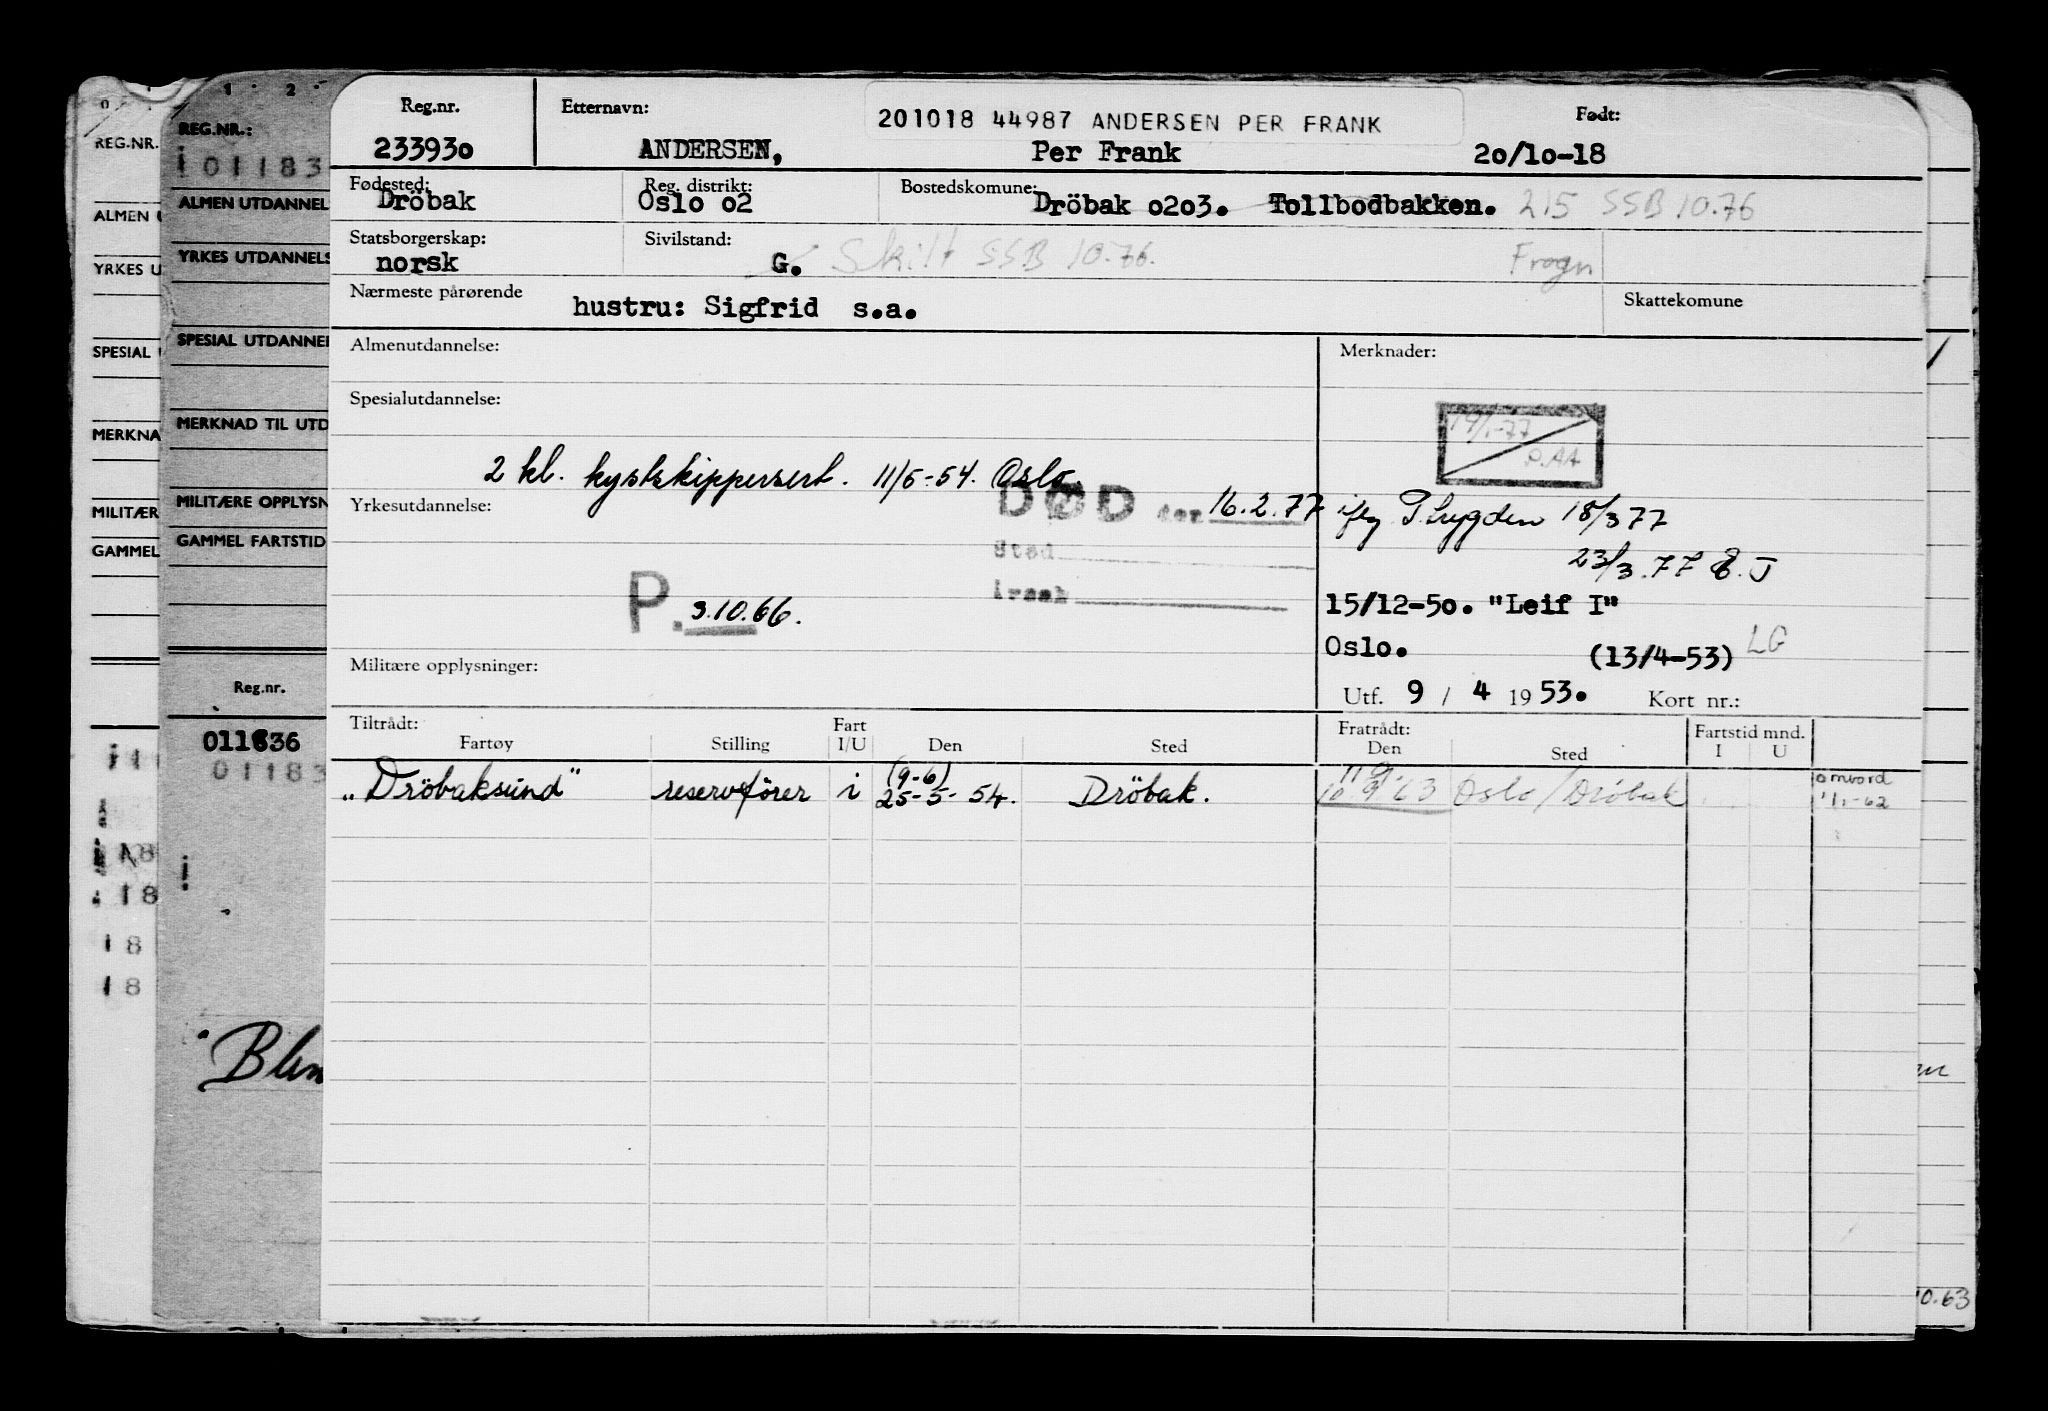 Reg.nr. Etternavn: 201018 44987 ANDERSEN PER FRANK Født:
233930 ANDERSEN, Per Frank 20/10-18
Fødested: Reg. distrikt: Bostedskomune:
Dröbak Oslo 02 Dröbak 0203. Tollbodbakken. 215 SSB 10.76
Statsborgerskap: Sivilstand:
norsk G. Skilt SSB 10.76. Frogn
Nærmeste pårørende Skattekomune
hustru: Sigfrid s.a.
Almenutdannelse: Merknader:
Spesialutdannelse:
19/1-77
P.AA
2 kl. kystskippersert. 11/5-54. Oslo.
Yrkesutdannelse: DØD den 16.2.77 iflg Trygden 18/3 77
Sted
23/3.77 E.J
Årsak
15/12-50. "Leif I"
P. 3.10.66.
Oslo. (13/4-53) LG
Militære opplysninger:
Utf. 9 / 4 1953. Kort nr.:
Tiltrådt: Fart Fratrådt: Fartstid mnd.
Fartøy Stilling I/U Den Sted Den Sted I U
"Dröbaksund" reservefører i (9-6) 25-5-54. Dröbak. 63 Oslo/Dröbak omvord 1/1-62
REG.NR.:
1 2
i 01183
ALMEN UTDANNEL
YRKES UTDANNELS
SPESIAL UTDANNEL
MERKNAD TIL UTD
MILITÆRE OPPLYSN
GAMMEL FARTSTID
Reg.nr.
011836
01183
i
"Blen
0
REG.NR.
ALMEN U
YRKES U
SPESIAL U
MERKNA
MILITÆR
GAMMEL
18
18
18
18
10.63